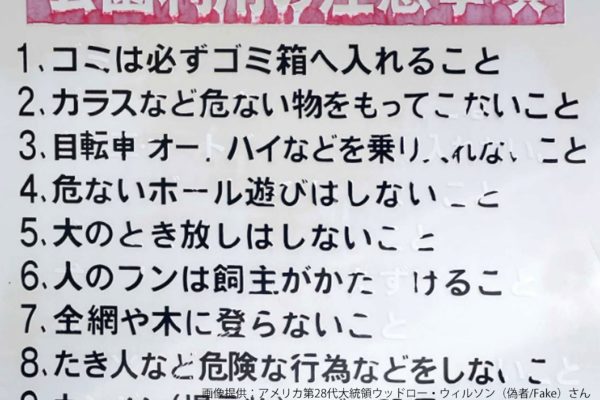 公園利用の注意事項
1、コミは必ずゴミ箱へ入れること
2、カラスなど危ない物をもってこないこと
3、自転申 オー ハイなどを乗り入れないこと
4、危ないホール遊びはしないこと
5、大のとき放しはしないこと
6、人のフンは飼主がかた けるこ
7、全網や木に登らないこ
8、たき人など危険な行為などをしないこ
画像提供：アメリカ第28代大統領ウッドロー・ウィルソン（偽者/Fake）さん